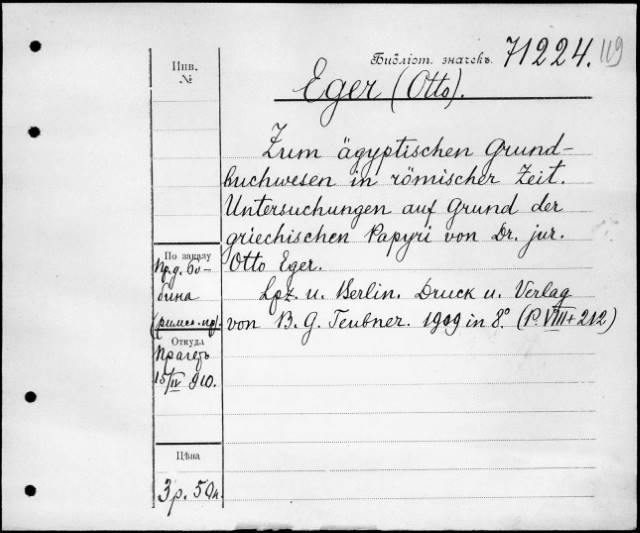 Библіот. значекъ 71224. 119
Инв.
№
Eger (Otto).
Zum ägyptischen Grund-
buchwesen in römischer Zeit.
Untersuchungen auf Grund der
griechischen Papyri von Dr. jur.
Otto Eger.
Lpz. u. Berlin. Druck u. Verlag
von B. G. Teubner. 1909 in 8° (P. VIII + 212)
По заказу
бина
Откуда
15/IV 910.
Цѣна
3 р. 50 к.